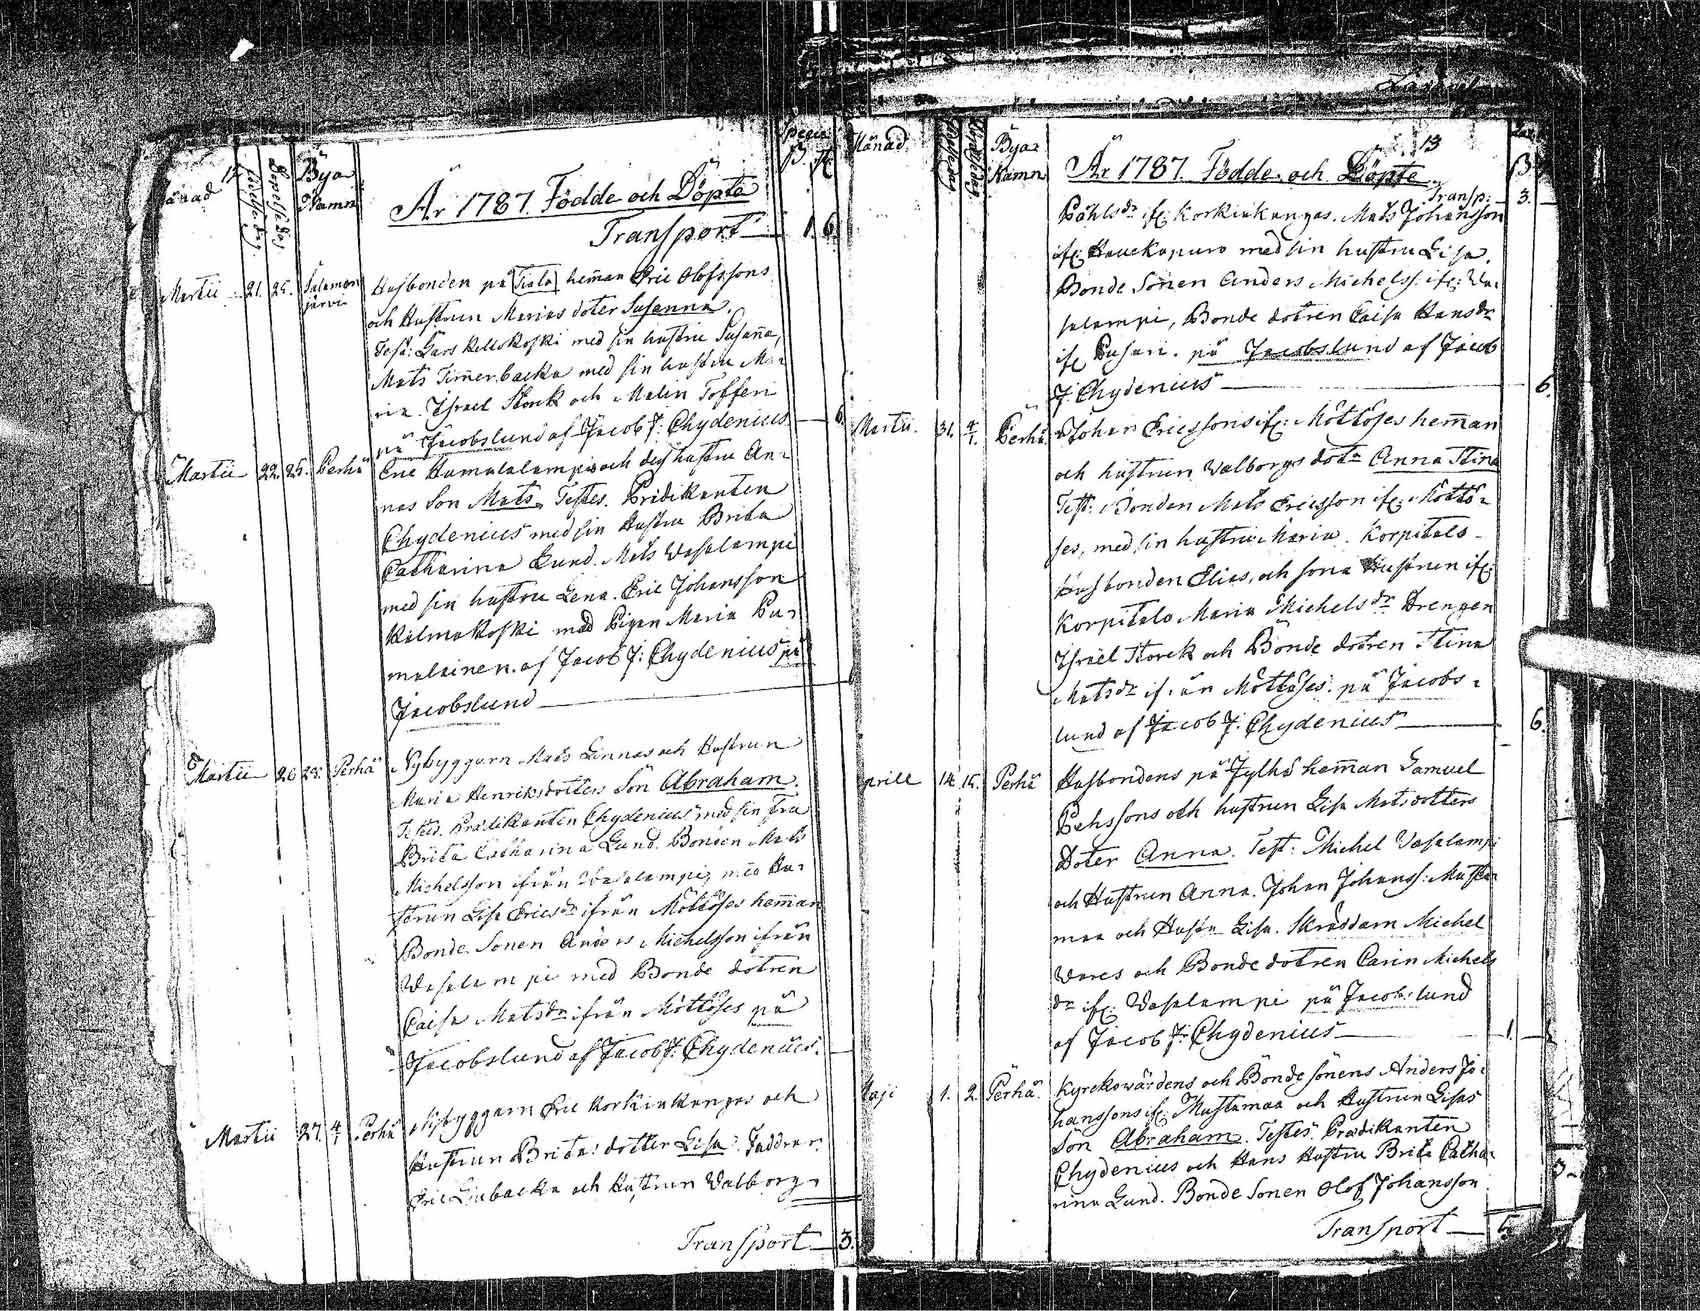 12
Månad
Födelse dag
Döpelse Dag
Bya
Namn
År 1787. Födde och Döpte
Transport 1. 6.
Martii 21. 25. Salamon
järvi
Husbonden på Tiala heman Eric Olofssons
och Hustrun Marias doter Susanna.
Test: Lars Kellokoski med sin hustru Susana,
Mats Timerbacka med sin hustru Ma-
ria. Israel Storck och Malin Tofferi
på Jacobslund af Jacob J: Chydenius 6.
Martii 22. 25. Perhå
Eric Humalalampis och des hustru An-
nas Son Mats. Testes. Predikanten
Chydenius med sin Hustru Brita
Catharina Lund. Mats Vasalampi
med sin hustru Lena. Eric Johansson
Kalmakoski med Pigan Maria Pu-
malainen. af Jacob J: Chydenius på
Jacobslund
Martii 26 29. Perhå
Nybyggarn Mats Linnas och Hustrun
Maria Henriksdotters Son Abraham.
Testes. Predikanten Chydenius med sin Fru
Brita Catharina Lund. Bonden Mats
Michelsson ifrån Vasalampi, med Hu-
strun Lisa Ericsdr ifrån Möttöses heman
Bonde Sonen Anders Michelsson ifrån
Vasalampi med Bonde dotren
Caisa Matsdr ifrån Möttöses på
Jacobslund af Jacob J: Chydenius.
Martii 27. 4/1 Perhå
Nybyggarn Eric Korkiakangas och
Hustrun Britas dotter Lisa. Faddrar:
Eric Linbacka och Hustrun Valborg
Transport 3.
Månad
Bya-
Namn
13
År 1787. Födde och Döpte
Transp: 3.
Påhlsdr if: Korkiakangas. Mats Johansson
if: Haukapuro med sin hustru Lisa.
Bonde Sonen Anders Michelss: if: Va-
salampi, Bonde dotren Caisa Hansdr
if: Pusari. på Jacobslund af Jacob
J Chydenius 6.
Martii. 31. 4/1. Perhå
Johan Ericssons if: Möttöses heman
och hustrun Valborgs dotr Anna Stina
Test: Bonden Mats Ericsson if: Möttö-
ses, med sin hustru Maria. Korpitalo
husbonden Elias, och sona Hustrun if:
Korpitalo Maria Michelsdr Drengen
Israel Storck och Bonde dotren Stina
Matsdr ifrån Möttöses. på Jacobs-
lund af Jacob J: Chydenius 6.
prill 14. 15. Perhå
Husbondens på Jylhä heman Samuel
Pehssons och hustrun Lisa Matsdotters
Doter Anna. Test: Michel Vasalampi
och Hustrun Anna. Johan Johanss: Musta-
maa och Hustru Lisa. Skräddarn Michel
Vares och Bonde dotren Carin Michels
dr if: Vasalampi på Jacobslund
af Jacob J: Chydenius 1.
Maji 1. 2. Perhå.
Kyrckowärdens och Bonde sonens Anders Jo-
hanssons if: Mustamaa och Hustrun Lisas
Son Abraham. Testes. Predikanten
Chydenius och Hans Hustru Brita Catha-
rina Lund. Bonde Sonen Olof Johansson
Transport 5.